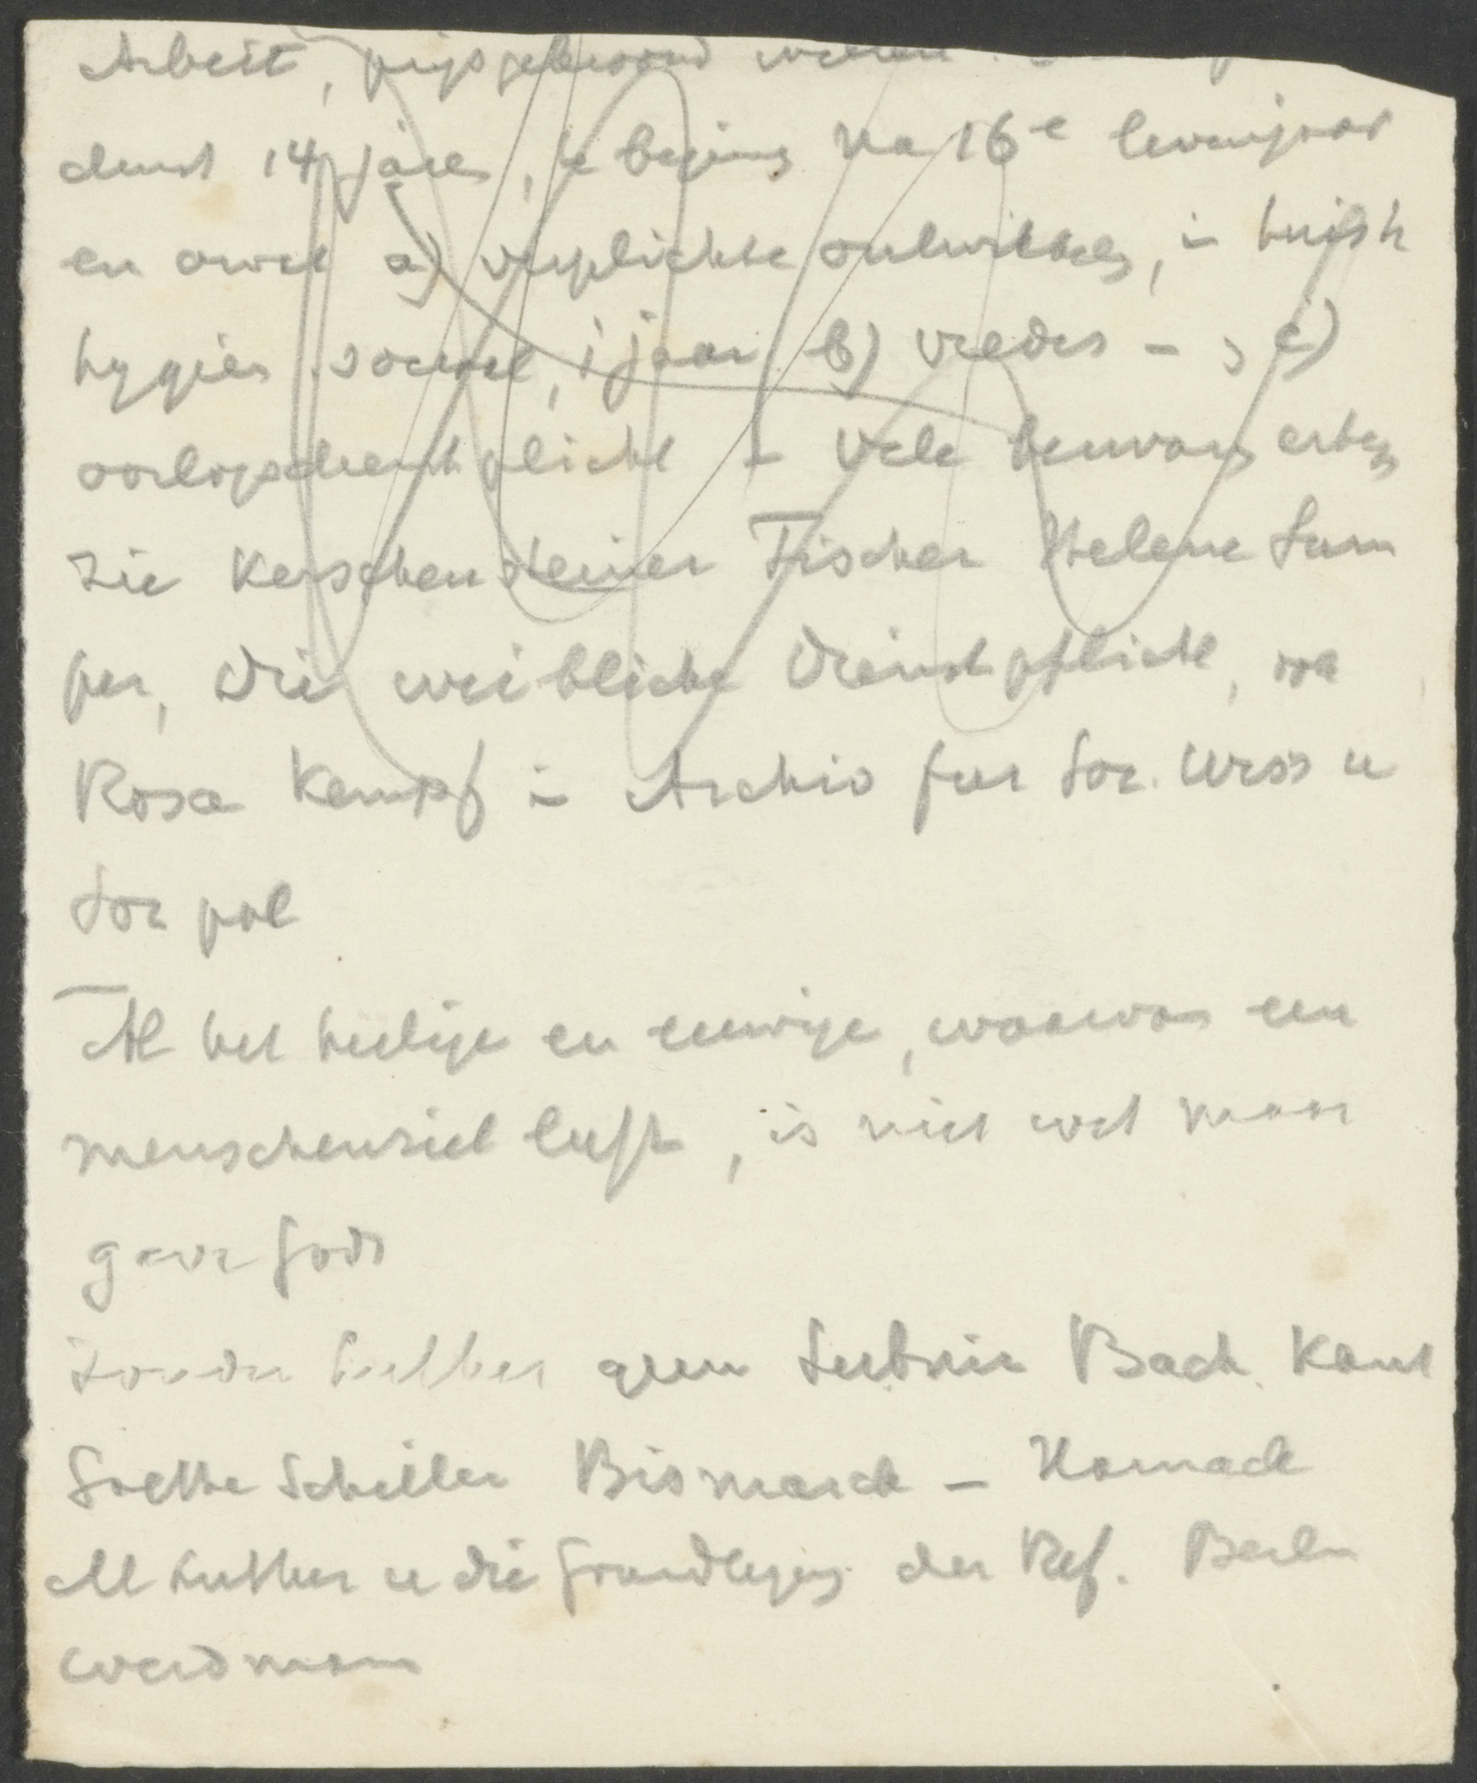 Arbeit, prijsgekroond werken
dienst 14 jaren, te begin na 16e levensjaar
en owel a) verplichte ontwikkeling, in huish
hygien sociaal, 1 jaar b) vredes - , c)
oorlogsdienstplicht - vele bewaar
zie Kerschensteiner Fischer Helene Sum
per, Die weibliche Dienstpflicht,
Rosa Kempf in Archiv fur Soz. Wiss u
Soz pol
Al het heilige en eeuwige, waarvan een
menschenziel leeft, is niet wat maar
gave Gods
Zonder Luther geen Leibniz Bach Kant
Goethe Schiller Bismarck - Harnack
M Luther u die Grundlegung der Ref. Berlin
Weidmann